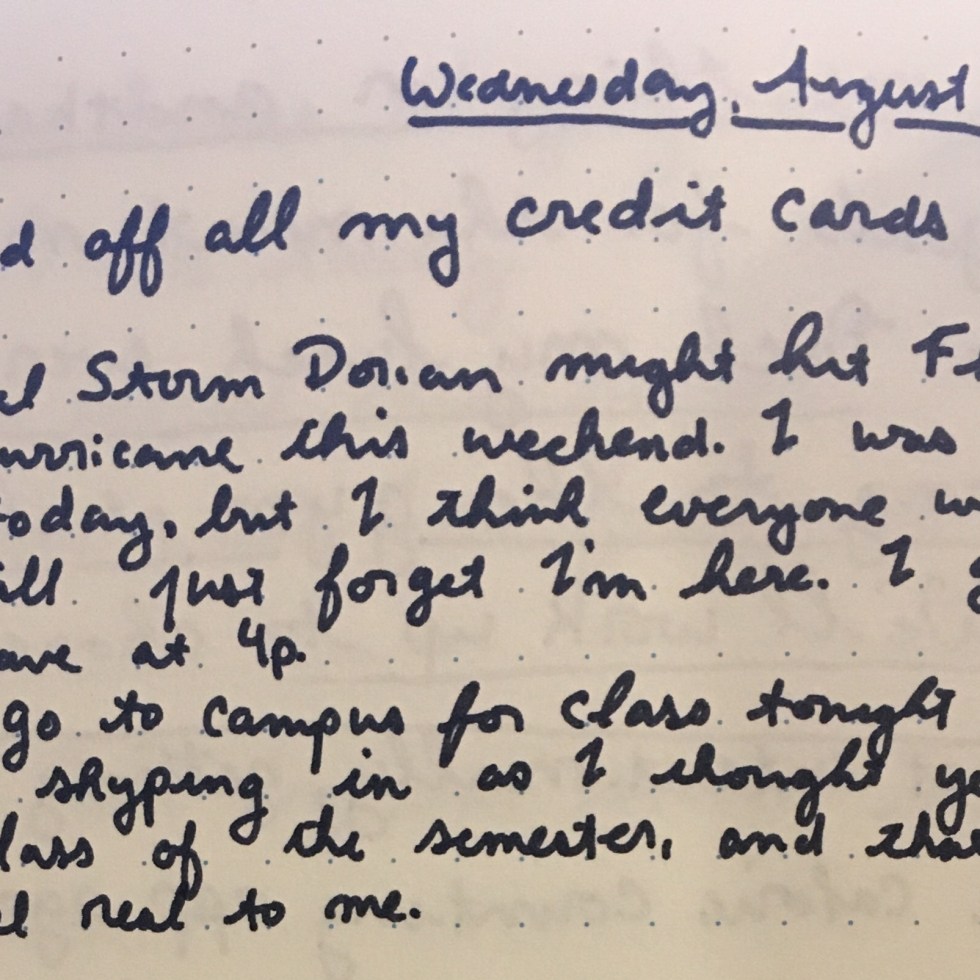 Wednesday, August
d off all my credit cards
el Storm Dorian might hit F
urricane this weekend. I was
today, but I think everyone w
ill just forget I'm here. I g
ave at 4p.
go to campus for class tonight
skyping in as I thought ye
lass of the semester, and that
el real to me.